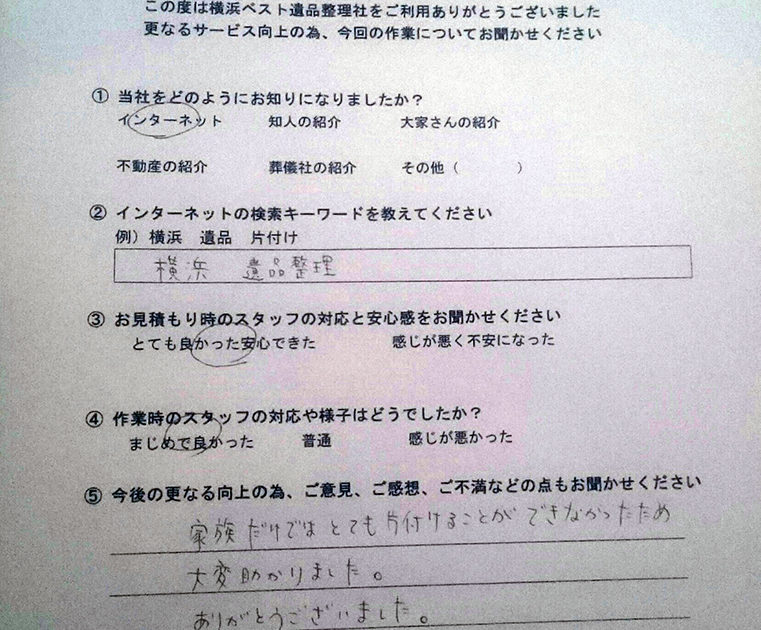 この度は横浜ベスト遺品整理社をご利用ありがとうございました
更なるサービス向上の為、今回の作業についてお聞かせください
① 当社をどのようにお知りになりましたか？
インターネット 知人の紹介 大家さんの紹介
不動産の紹介 葬儀社の紹介 その他（ ）
② インターネットの検索キーワードを教えてください
例）横浜 遺品 片付け
横浜 遺品整理
③ お見積もり時のスタッフの対応と安心感をお聞かせください
とても良かった安心できた 感じが悪く不安になった
④ 作業時のスタッフの対応や様子はどうでしたか？
まじめで良かった 普通 感じが悪かった
⑤ 今後の更なる向上の為、ご意見、ご感想、ご不満などの点もお聞かせください
家族だけではとても片付けることができなかったため
大変助かりました。
ありがとうございました。